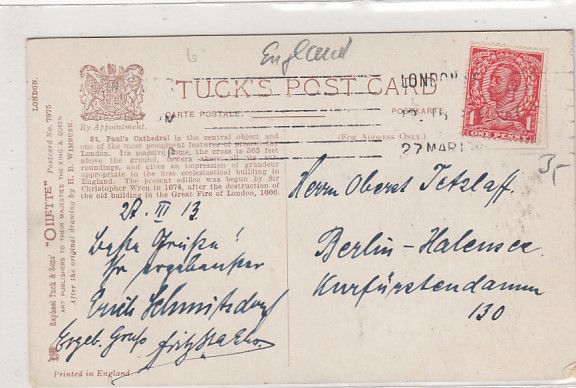 England
TUCK'S POST CARD
CARTE POSTALE.
POSTKARTE.
(FOR ADDRESS ONLY.)
By Appointment.
St. Paul's Cathedral is the central object and
one of the most prominent features of
London. Its massive the cross is 365 feet
above the ground, towers above all its sur-
roundings, and gives an impression of grandeur
appropriate to the first ecclesiastical building in
England. The present edifice was begun by Sir
Christopher Wren in 1674, after the destruction of
the old building in the Great Fire of London, 1666.
LONDON
27 MAR 1
1 1
ONE PENNY
27. III 13
Beste Grüße!
Ihr ergebenster
Erich Schmitsdorf
Ergeb. Gruß
Herrn Oberst Tetzlaff.
Berlin-Halensee
Kurfürstendamm
130
LONDON.
Raphael Tuck & Sons' "OILETTE" Postcard No. 7975
ART PUBLISHERS TO THEIR MAJESTIES THE KING & QUEEN.
After the original drawing by H. B. WIMBUSH.
Printed in England.